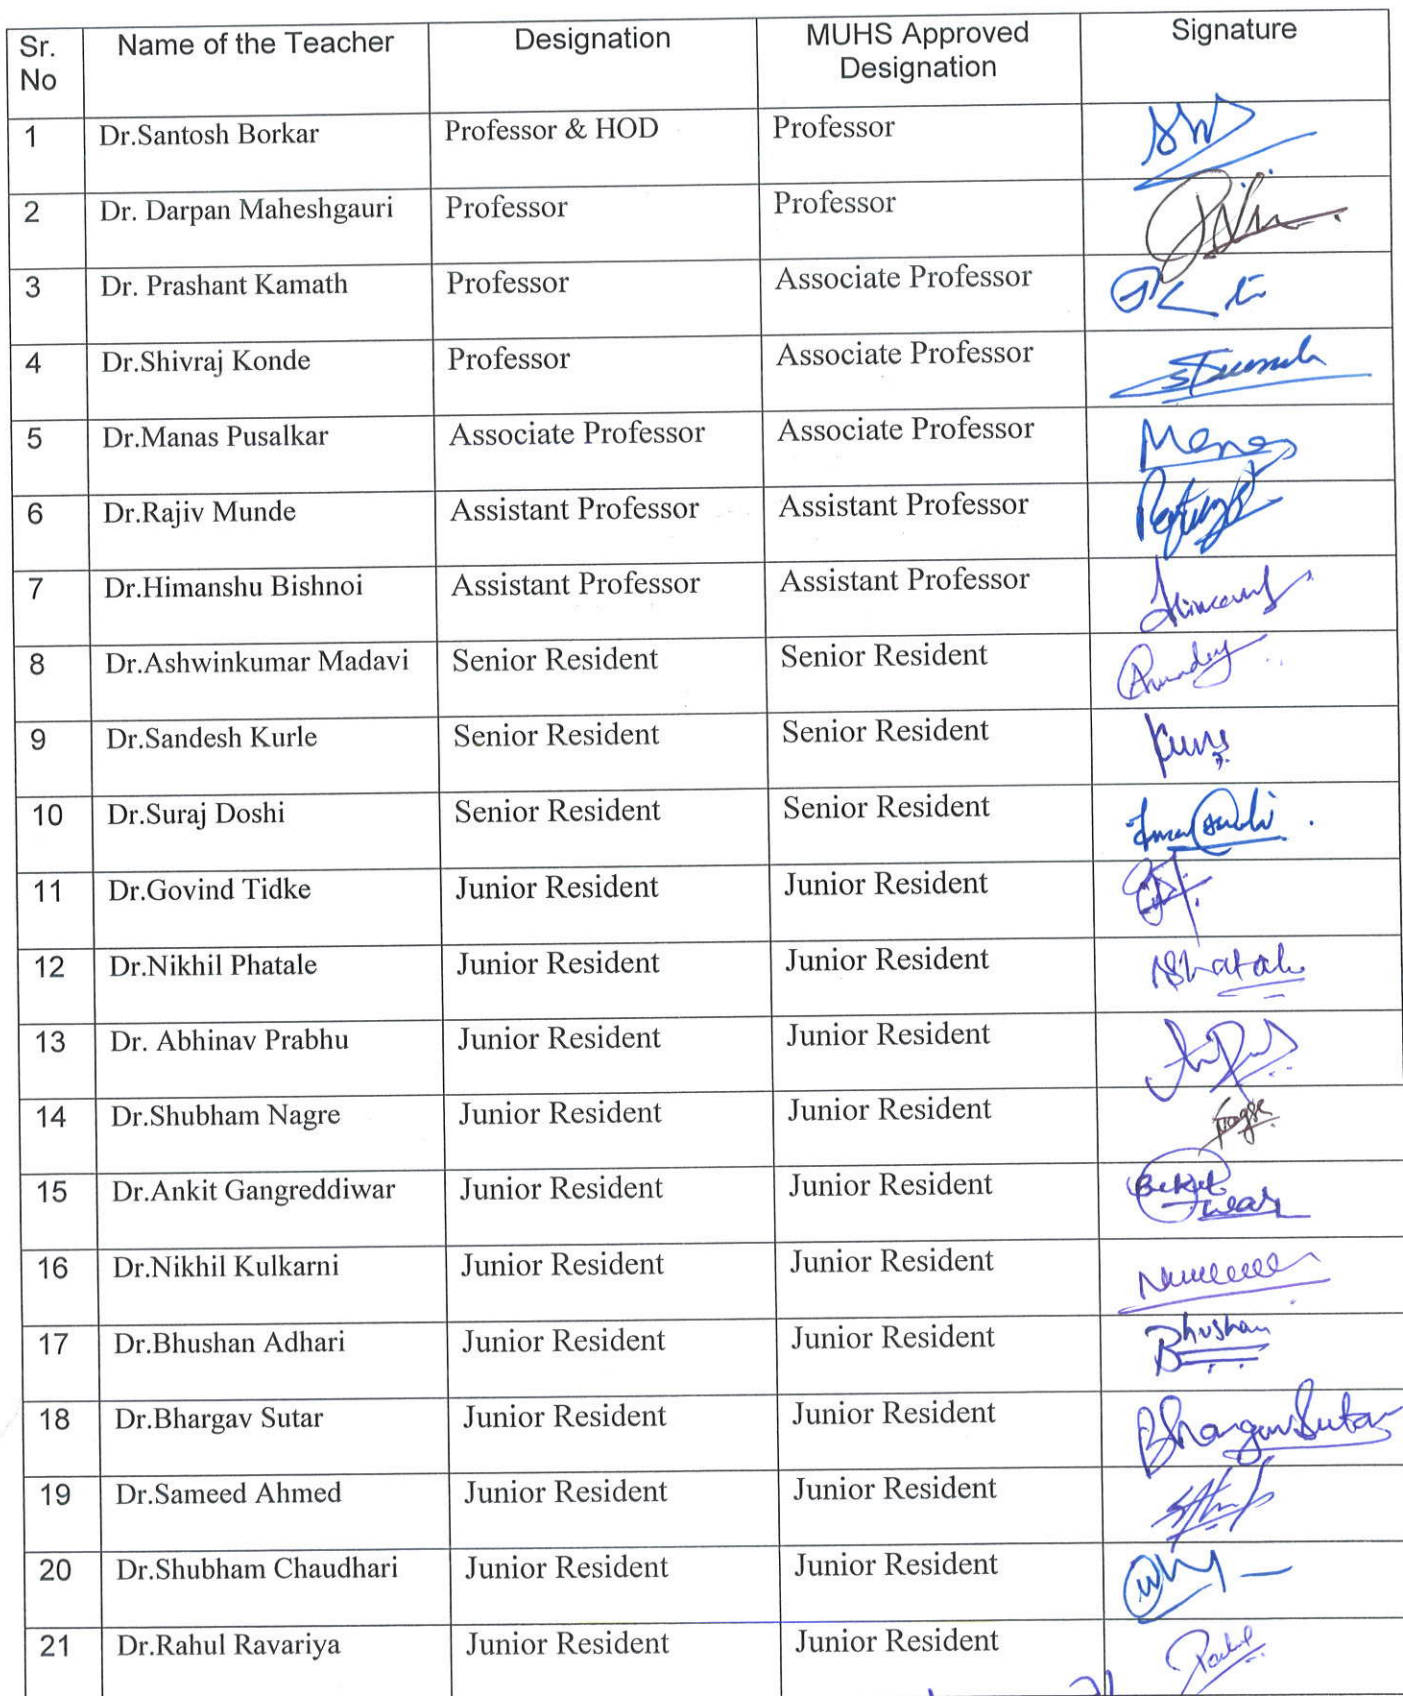 Sr. No Name of the Teacher Designation MUHS Approved Designation Signature
1 Dr.Santosh Borkar Professor & HOD Professor
2 Dr. Darpan Maheshgauri Professor Professor
3 Dr. Prashant Kamath Professor Associate Professor
4 Dr.Shivraj Konde Professor Associate Professor
5 Dr.Manas Pusalkar Associate Professor Associate Professor Manas
6 Dr.Rajiv Munde Assistant Professor Assistant Professor
7 Dr.Himanshu Bishnoi Assistant Professor Assistant Professor
8 Dr.Ashwinkumar Madavi Senior Resident Senior Resident
9 Dr.Sandesh Kurle Senior Resident Senior Resident
10 Dr.Suraj Doshi Senior Resident Senior Resident
11 Dr.Govind Tidke Junior Resident Junior Resident
12 Dr.Nikhil Phatale Junior Resident Junior Resident
13 Dr. Abhinav Prabhu Junior Resident Junior Resident
14 Dr.Shubham Nagre Junior Resident Junior Resident
15 Dr.Ankit Gangreddiwar Junior Resident Junior Resident
16 Dr.Nikhil Kulkarni Junior Resident Junior Resident
17 Dr.Bhushan Adhari Junior Resident Junior Resident Bhushan
18 Dr.Bhargav Sutar Junior Resident Junior Resident Bhargav Sutar
19 Dr.Sameed Ahmed Junior Resident Junior Resident
20 Dr.Shubham Chaudhari Junior Resident Junior Resident
21 Dr.Rahul Ravariya Junior Resident Junior Resident